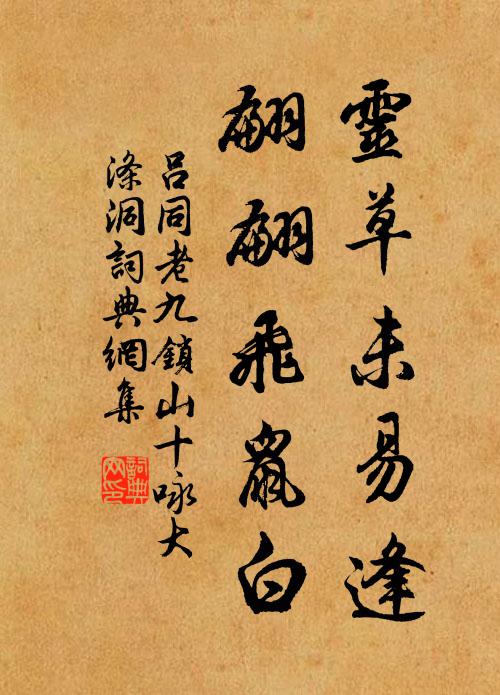 靈草未易逢
翩翩飛鼠白
呂同老九鎖山十咏大
滌洞詞典網集
詞典
网印